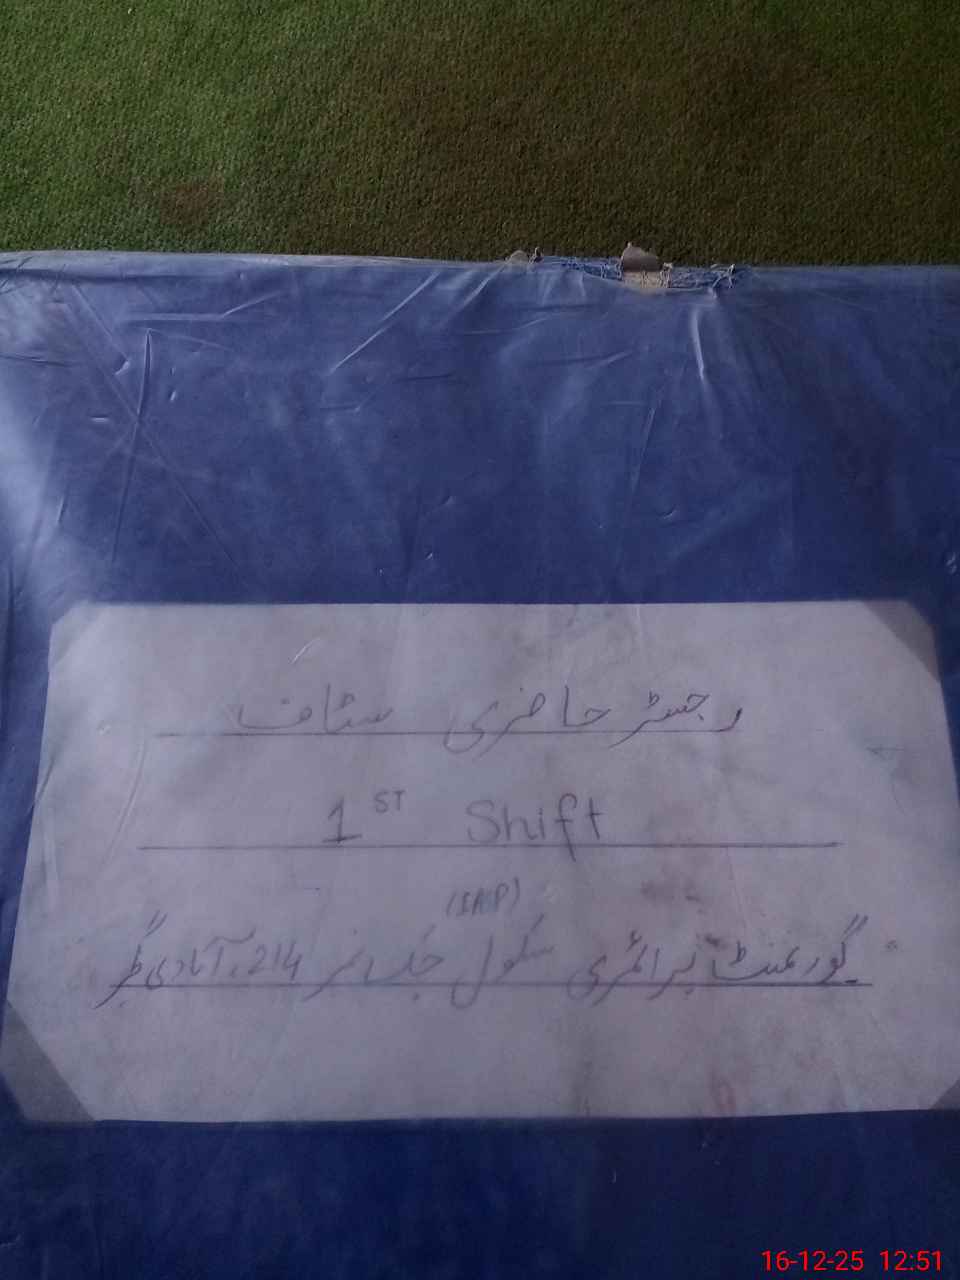 رجسٹر حاضری سٹاف
1ST Shift
(IAP)
گورنمنٹ پرائمری سکول چک نمبر 214. آبادی
16-12-25 12:51